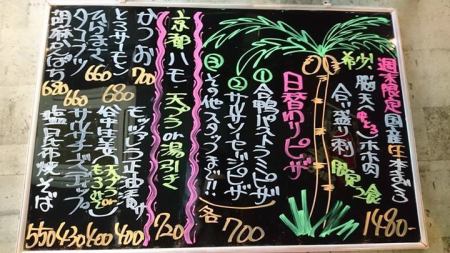 週末限定国産生本まぐろ
希少! 脳天(中とろ)ホホ肉
合い盛り刺 限定2食
1480-
日替りピザ
①合鴨パストラミピザ
②サルサソーセージピザ
③その他スタッフまで!!
各700
京都ハモ・天プラor湯引き
720
かつお 700
とろサーモン 680
ひらまさ 660
タコブツ 660
胡麻かんぱち 680
モッツァレラ 400
谷中生姜(天プラorもろみ) 400
サルサチーズチップ 430
塩昆布焼そば 550